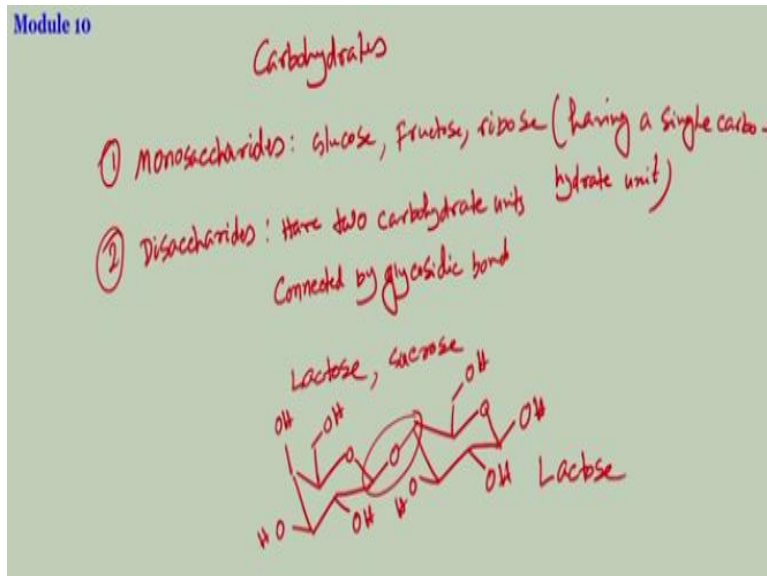 Module 10
Carbohydrates
① Monosaccharides: Glucose, Fructose, ribose (having a single carbo-
hydrate unit)
② Disaccharides: Have two carbohydrate units
Connected by glycosidic bond
Lactose, sucrose
OH
OH OH
O O O OH
HO OH HO OH Lactose